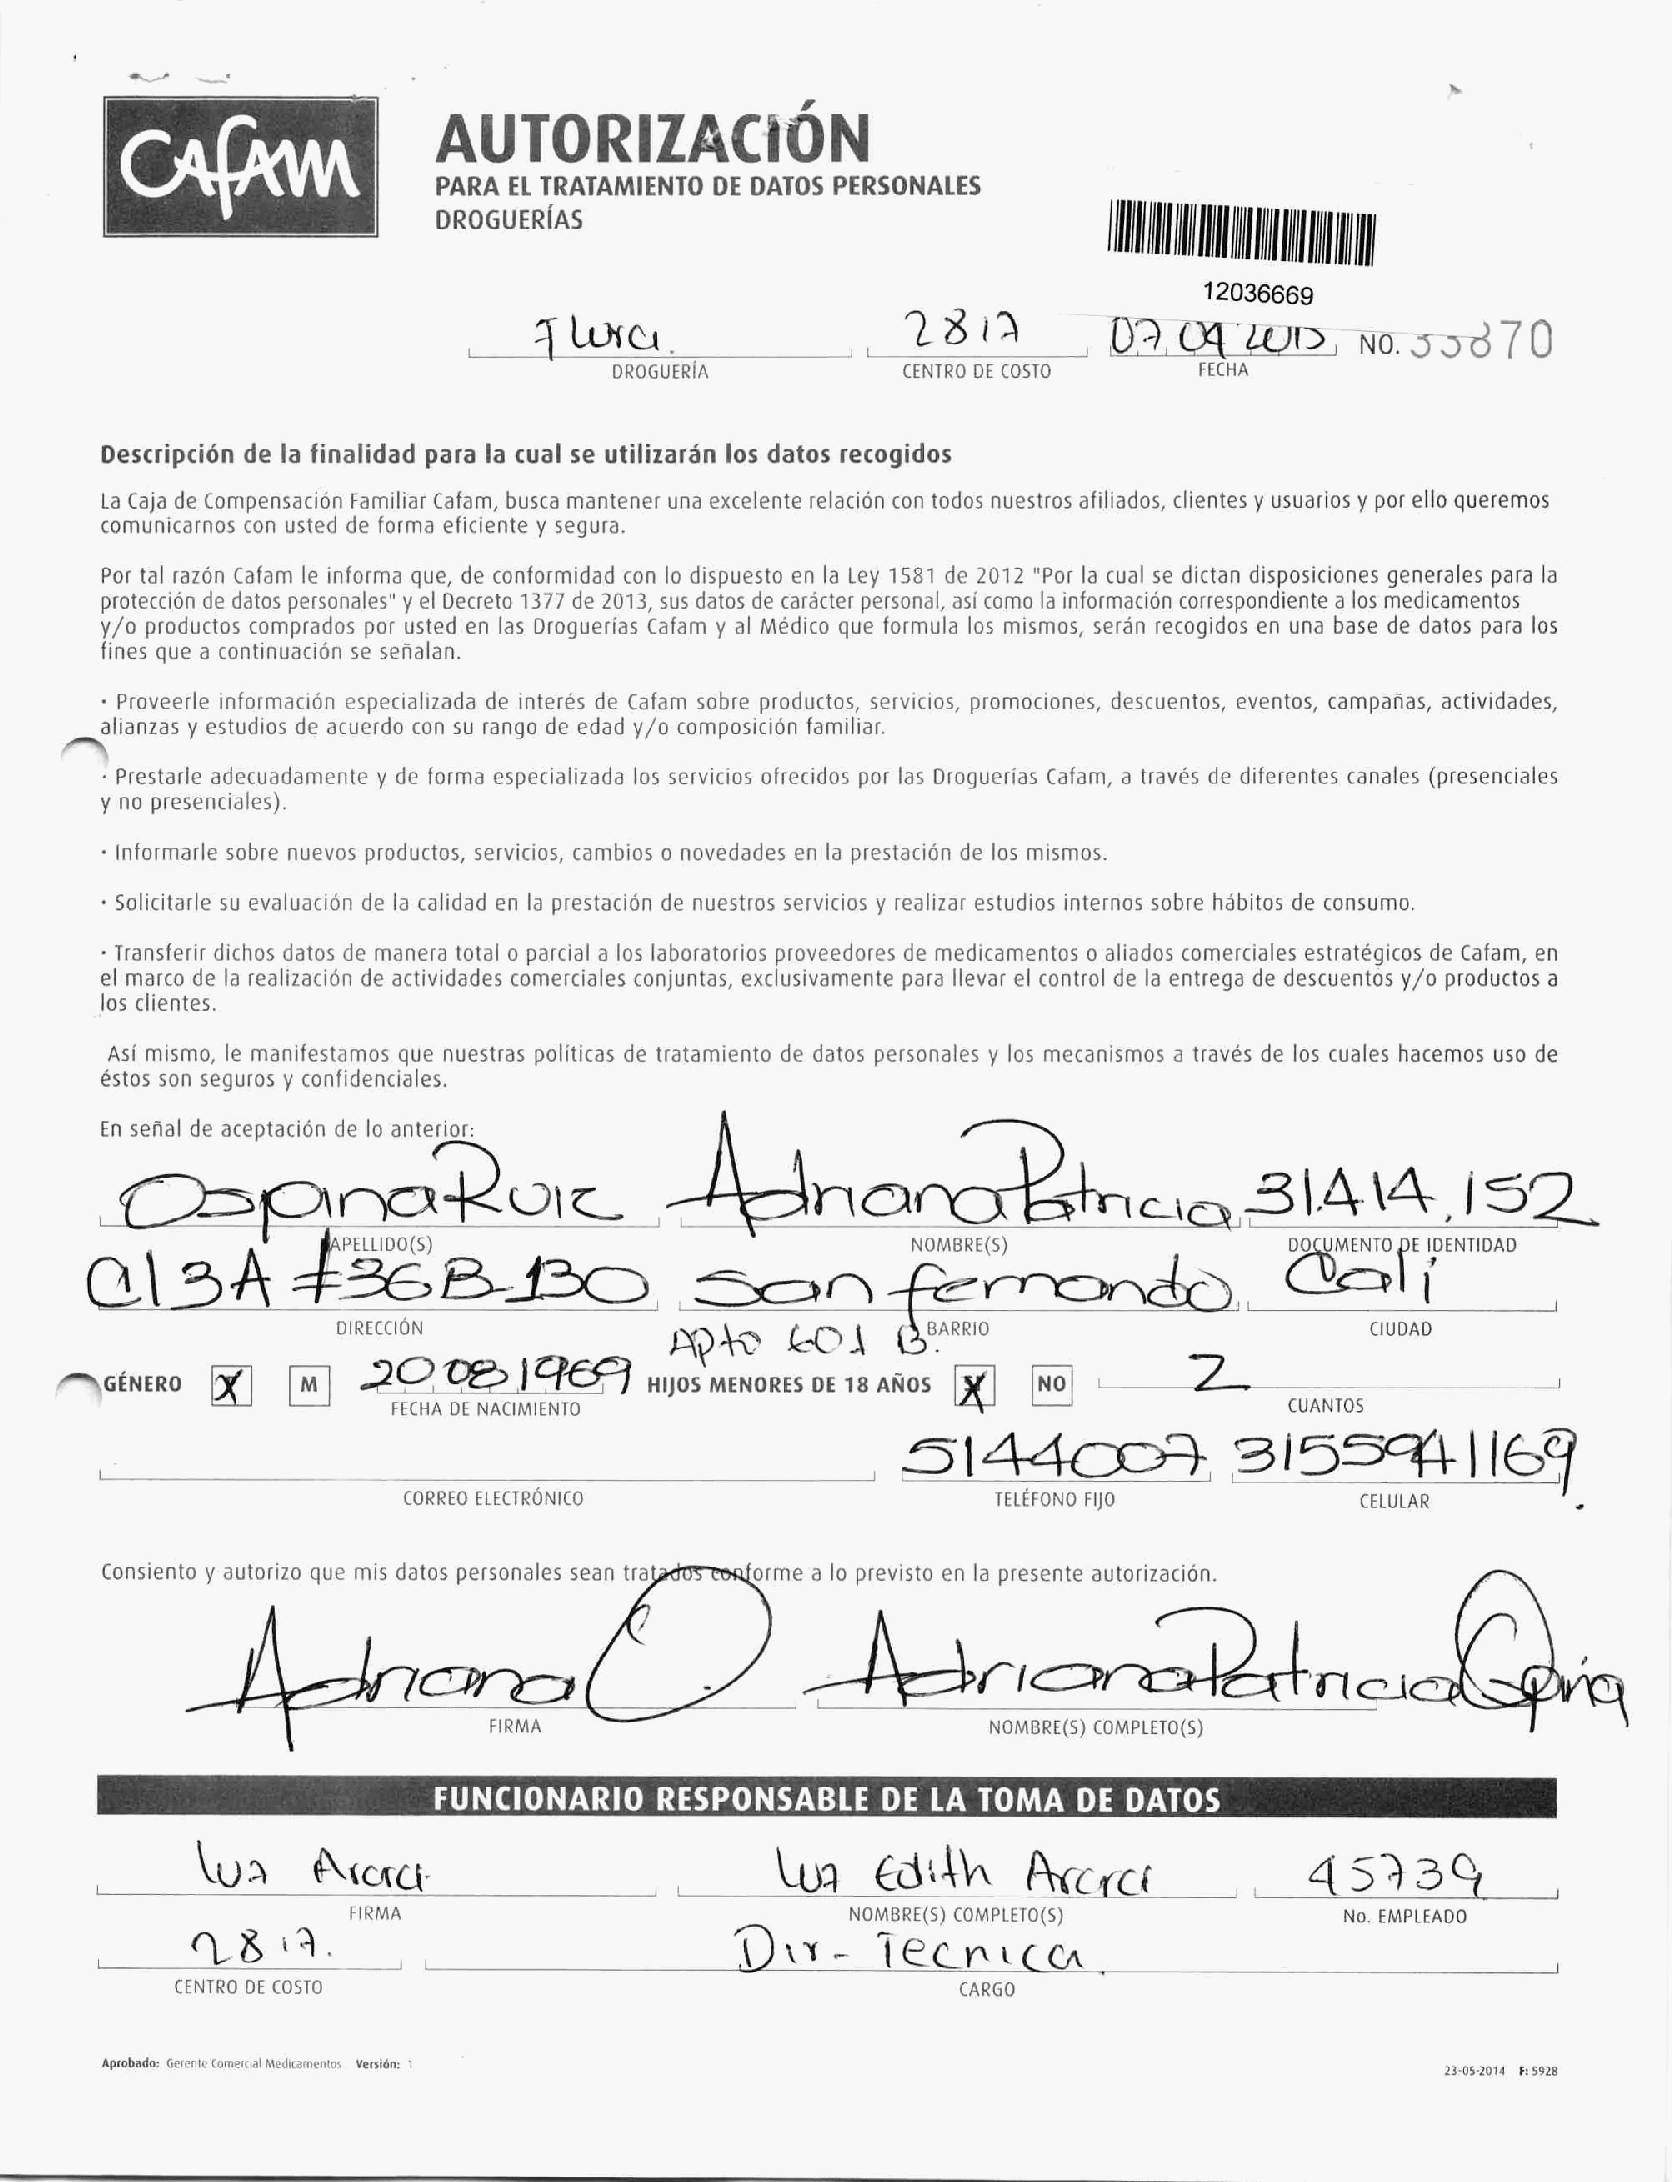 CAFAM
AUTORIZACIÓN
PARA EL TRATAMIENTO DE DATOS PERSONALES
DROGUERÍAS
12036669
2817 07 09 2015 NO. 870
DROGUERÍA CENTRO DE COSTO FECHA
Descripción de la finalidad para la cual se utilizarán los datos recogidos
La Caja de Compensación Familiar Cafam, busca mantener una excelente relación con todos nuestros afiliados, clientes y usuarios y por ello queremos
comunicarnos con usted de forma eficiente y segura.
Por tal razón Cafam le informa que, de conformidad con lo dispuesto en la Ley 1581 de 2012 "Por la cual se dictan disposiciones generales para la
protección de datos personales" y el Decreto 1377 de 2013, sus datos de carácter personal, así como la información correspondiente a los medicamentos
y/o productos comprados por usted en las Droguerías Cafam y al Médico que formula los mismos, serán recogidos en una base de datos para los
fines que a continuación se señalan.
· Proveerle información especializada de interés de Cafam sobre productos, servicios, promociones, descuentos, eventos, campañas, actividades,
alianzas y estudios de acuerdo con su rango de edad y/o composición familiar.
· Prestarle adecuadamente y de forma especializada los servicios ofrecidos por las Droguerías Cafam, a través de diferentes canales (presenciales
y no presenciales).
· Informarle sobre nuevos productos, servicios, cambios o novedades en la prestación de los mismos.
· Solicitarle su evaluación de la calidad en la prestación de nuestros servicios y realizar estudios internos sobre hábitos de consumo.
· Transferir dichos datos de manera total o parcial a los laboratorios proveedores de medicamentos o aliados comerciales estratégicos de Cafam, en
el marco de la realización de actividades comerciales conjuntas, exclusivamente para llevar el control de la entrega de descuentos y/o productos a
los clientes.
Así mismo, le manifestamos que nuestras políticas de tratamiento de datos personales y los mecanismos a través de los cuales hacemos uso de
éstos son seguros y confidenciales.
En señal de aceptación de lo anterior:
Ospina Ruiz Adriana Patricia 31.414.152
APELLIDO(S) NOMBRE(S) DOCUMENTO DE IDENTIDAD
Cl 3A #36B-130 San fernando Cali
DIRECCIÓN BARRIO CIUDAD
Apto 601 B.
GÉNERO X M 20 08 1969 HIJOS MENORES DE 18 AÑOS X NO 2
FECHA DE NACIMIENTO CUANTOS
5144007 3155941169
CORREO ELECTRÓNICO TELÉFONO FIJO CELULAR
Consiento y autorizo que mis datos personales sean tratados conforme a lo previsto en la presente autorización.
Adriana O. Adriana Patricia Ospina
FIRMA NOMBRE(S) COMPLETO(S)
FUNCIONARIO RESPONSABLE DE LA TOMA DE DATOS
Luz Luz Edith 45739
FIRMA NOMBRE(S) COMPLETO(S) No. EMPLEADO
2817. Dir - Tecnica
CENTRO DE COSTO CARGO
Aprobado: Gerente Comercial Medicamentos Versión: 1
23-05-2014 F: 5928